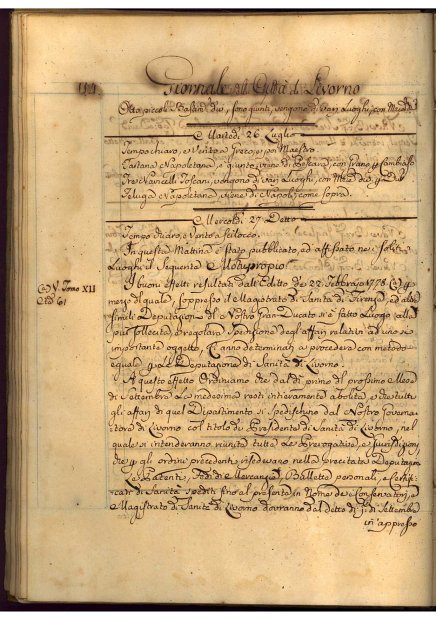 Giornale di Città di Livorno
Otto piccoli Toscani div, sono giunti, vengono di van Luoghi, con Merci
Martedì 26 Luglio
Tempo chiaro, e Vento a Greco, e poi Maestro
Tartana Napoletana, è giunta, viene di con Grano,
Tre Navicelli Toscani, vengono di van Luoghi, con Merci div,
Feluga Napoletana viene di Napoli, come sopra
Mercoldì 27 Detto
Tempo Vento a Scilocco.
In questa Mattina è stato pubblicato, ed affissato nei soliti
Luoghi il Seguente Motuproprio
I buoni effetti resultati dall'Editto de' 22 Febbraio 1778 (a)
(a) V. Tomo XII
61
mezzo del quale, soppresso il Magistrato di Sanità di Firenze, ed altre
simili Deputazioni del Nostro Gran Ducato si è fatto Luogo alla
più sollecita, e regolare Spedizione degli affari relativi ad uno sì
importante oggetto, Ci anno determinati a procedere con metodo
eguale La Deputazione di Sanità di Livorno.
A questo effetto Ordiniamo che dal dì primo del prossimo Mese
di Settembre La medesima resti intieramente abolita, e che tutti
gli affari di quel Dipartimento si spedischino dal Nostro Governa=
tore di Livorno col titolo di Presidente di Sanità di Livorno, nel
quale si intenderanno riunite tutte Le Prerogative, e Giurisdizioni,
che gli ordini precedenti risedevano nella precitata Deputazione
Le Patenti, Fedi di Mercanzie, Bullette personali, e Certifi=
cati di Sanità spediti fino al presente in Nome de' Conservatori, e
Magistrato di Sanità di Livorno dovranno dal detto dì pmo di Settembre
in appresso